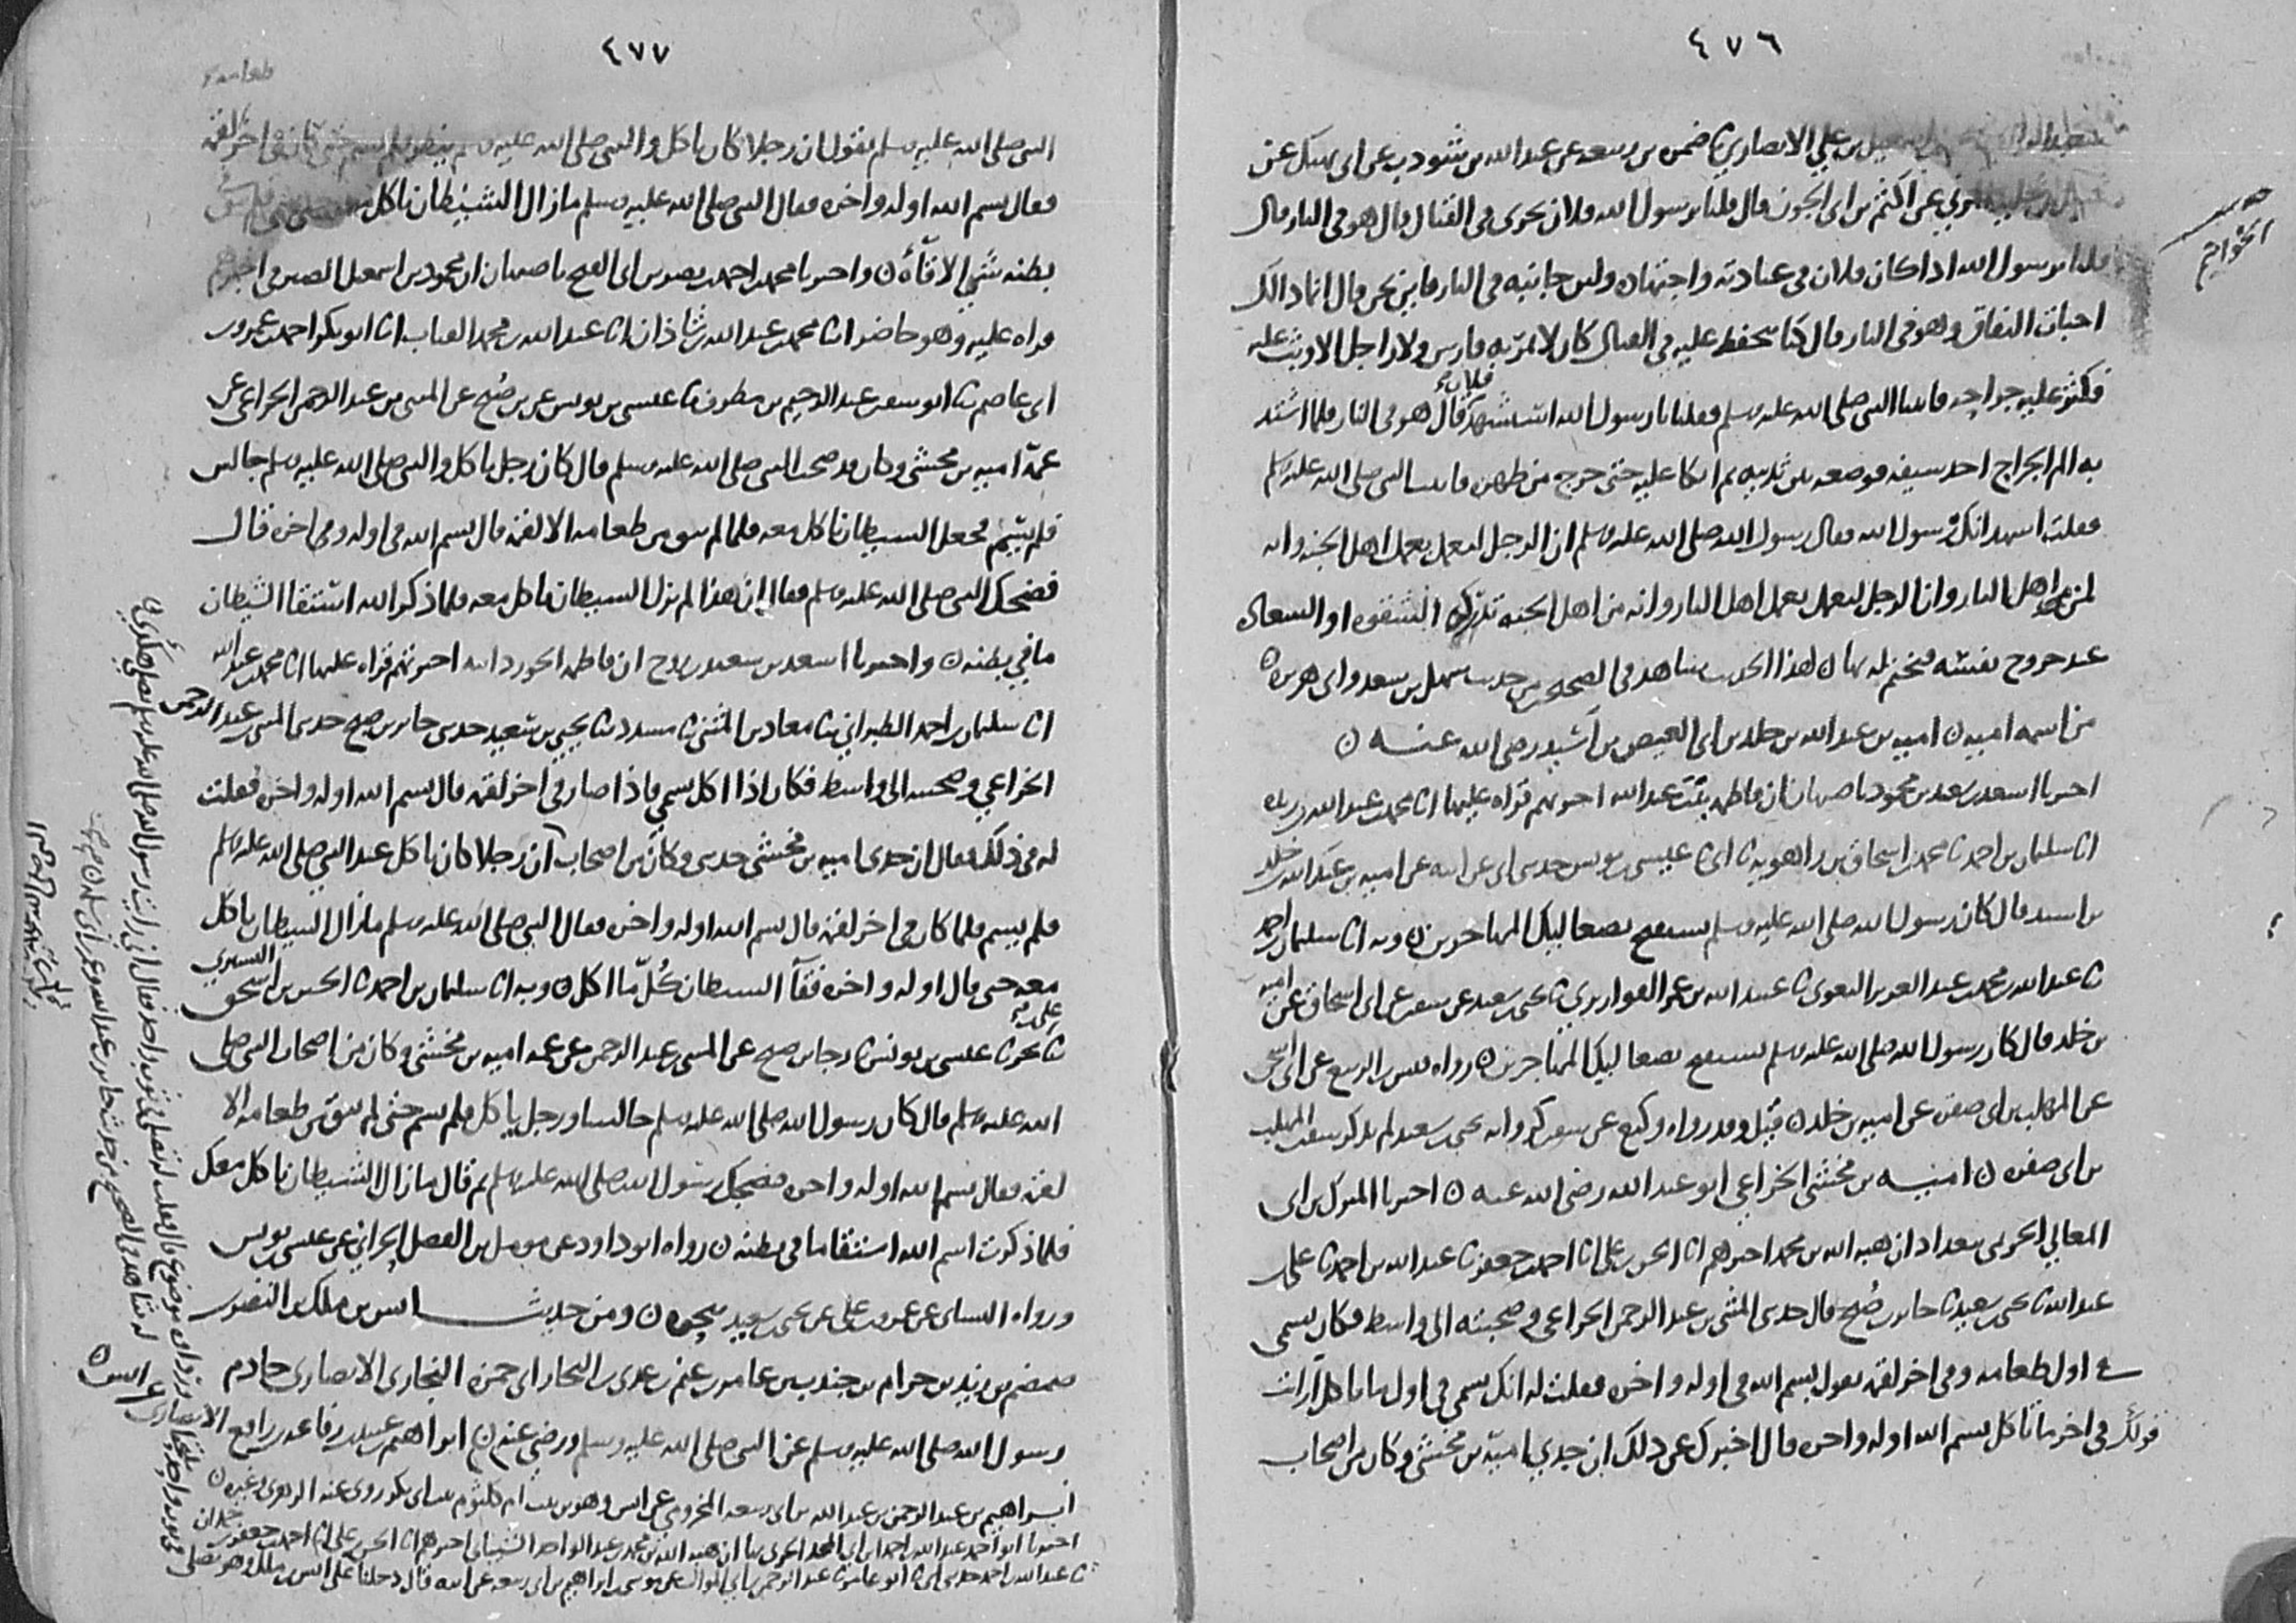 ٤٧٦
علي الانصاري ثنا ضمرة بن ربيعة عن عبد الله بن شوذب عن ابي نهيك عن
المزني عن اكثم بن ابي الجون قال قلنا يرسول الله فلان يجري في القتال قال هو في النار قال
قلنا يرسول الله اذا كان فلان في عبادته واجتهاده ولين جانبه في النار فاين نحن قال انما ذلك
اخبات النفاق وهو في النار قال كنا نحفظ عليه في القتال كان لا يمر به فارس ولا راجل الا وثب عليه
فكثر عليه جراحه فاتينا النبي صلى الله عليه وسلم فقلنا يا رسول الله استشهد فلان قال هو في النار فلما اشتد
به الم الجراح اخذ سيفه فوضعه بين ثدييه ثم اتكا عليه حتى خرج من ظهره فاتيت النبي صلى الله عليه وسلم
فقلت اشهد انك رسول الله فقال رسول الله صلى الله عليه وسلم ان الرجل ليعمل بعمل اهل الجنة وانه
لمن اهل النار وان الرجل ليعمل بعمل اهل النار وانه من اهل الجنة تدركه الشقوة او السعادة
عند خروج نفسه فيختم له بها ن لهذا الحديث شاهد في الصحيح من حديث سهل بن سعد وابي هريرة ن
من اسمه امية ن امية بن عبد الله بن خلد بن ابي العيص بن اسيد رضي الله عنه ن
اخبرنا اسعد بن سعيد بن محمود باصبهان ان فاطمة بنت عبد الله اخبرتهم قراه عليها انا محمد بن عبد الله بن ريذه
انا سليمان بن احمد ثنا محمد بن اسحاق بن راهويه ثنا ابي ثنا عيسى بن يونس حدثني ابي عن ابيه عن امية بن عبد الله بن خلد
بن اسيد قال كان رسول الله صلى الله عليه وسلم يستفتح بصعاليك المهاجرين ن وبه انا سليمان بن احمد
ثنا عبد الله بن محمد بن عبد العزيز البغوي ثنا عبيد الله بن عمر القواريري ثنا يحيى بن سعيد عن سفين عن ابي اسحاق عن امية
بن خلد قال كان رسول الله صلى الله عليه وسلم يستفتح بصعاليك المهاجرين ن رواه قيس بن الربيع عن ابي اسحق
عن المهلب بن ابي صفرة عن امية بن خلد ن قيل وقد رواه وكيع عن سفين كرواية يحيى بن سعيد لم يذكر سفين المهلب
بن ابي صفرة ن امية بن مخشي الخزاعي ابو عبد الله رضي الله عنه ن اخبرنا المبرك بن ابي
المعالي الحريمي ببغداد ان هبة الله بن محمد اخبرهم انا الحسن بن علي انا احمد بن جعفر ثنا عبد الله بن احمد ثنا علي بن
عبد الله ثنا يحيى بن سعيد ثنا جابر بن صبح قال حدثني المثنى بن عبد الرحمن الخزاعي وصحبته الى واسط فكان يسمي
في اول طعامه وفي اخر لقمة يقول بسم الله في اوله واخره فقلت له انك تسمي في اول ما تاكل ارايت
قولك في اخر ما تاكل بسم الله اوله واخره قال اخبرك عن ذلك ان جدي امية بن مخشي وكان من اصحاب
حديث
الخواتيم
٤٧٧
النبي صلى الله عليه وسلم يقول ان رجلا كان ياكل والنبي صلى الله عليه وسلم ينظر فلم يسم حتى كان في اخر لقمة
فقال بسم الله اوله واخره فقال النبي صلى الله عليه وسلم ما زال الشيطان ياكل
بطنه شي الا قاءه ن واخبرنا محمد بن احمد بن نصر بن ابي الفتح باصبهان ان محمود بن اسمعيل الصيرفي اخبرهم
قراه عليه وهو حاضر انا محمد بن عبد الله بن شاذان انا عبد الله بن محمد القباب انا ابو بكر احمد بن عمرو بن
ابي عاصم ثنا ابو سفين عبد الرحيم بن مطرف ثنا عيسى بن يونس عن بن صبح عن المثنى بن عبد الرحمن الخزاعي عن
عمه امية بن مخشي وكان قد صحب النبي صلى الله عليه وسلم قال كان رجل ياكل والنبي صلى الله عليه وسلم جالس
فلم يسم فجعل الشيطان ياكل معه فلما لم يبق من طعامه الا لقمة قال بسم الله في اوله وفي اخره قال
فضحك النبي صلى الله عليه وسلم فقال ان هذا لم يزل الشيطان ياكل معه فلما ذكر الله استقا الشيطان
ما في بطنه ن واخبرنا اسعد بن سعيد بن روح ان فاطمة الجوزدانية اخبرتهم قراه عليها انا محمد بن عبد الله
انا سليمان بن احمد الطبراني ثنا معاذ بن المثنى ثنا مسدد ثنا يحيى بن سعيد حدثني جابر بن صبح حدثني المثنى بن عبد الرحمن
الخزاعي وصحبته الى واسط فكان اذا اكل يسمي فاذا صار في اخر لقمة قال بسم الله اوله واخره فقلت
له في ذلك فقال ان جدي امية بن مخشي حدثني وكان من اصحاب ان رجلا كان ياكل عند النبي صلى الله عليه وسلم
فلم يسم فلما كان في اخر لقمة قال بسم الله اوله واخره فقال النبي صلى الله عليه وسلم ما زال الشيطان ياكل
معه حتى قال اوله واخره فقآ الشيطان كل ما اكل ن وبه انا سليمان بن احمد ثنا الحسين بن اسحق التستري
ثنا علي بن بحر ثنا عيسى بن يونس ثنا جابر بن صبح عن المثنى بن عبد الرحمن عن عمه امية بن مخشي وكان من اصحاب النبي صلى
الله عليه وسلم قال كان رسول الله صلى الله عليه وسلم جالسا ورجل ياكل فلم يسم حتى لم يبق من طعامه الا
لقمة فقال بسم الله اوله واخره فضحك رسول الله صلى الله عليه وسلم ثم قال ما زال الشيطان ياكل معك
فلما ذكرت اسم الله استقا ما في بطنه ن رواه ابو داود عن مومل بن الفضل الحراني عن عيسى بن يونس
ورواه النسائي عن عمرو بن علي عن يحيى بن سعيد بنحوه ن ومن حديث انس بن ملك بن النضر بن
ضمضم بن زيد بن حرام بن جندب بن عامر بن غنم بن عدي بن النجار ابي حمزة النجاري الانصاري خادم
رسول الله صلى الله عليه وسلم عن النبي صلى الله عليه وسلم ورضي عنه ن ابراهيم بن عبيد بن رفاعة بن رافع الانصاري عن انس ن
ابراهيم بن عبد الرحمن بن عبد الله بن ابي ربيعة المخزومي عن انس وهو بن بنت ام كلثوم بنت ابي بكر روى عنه الزهري وغيره ن
اخبرنا ابو احمد عبد الله بن احمد بن ابي المجد الحربي بها ان هبة الله بن محمد بن عبد الواحد الشيباني اخبرهم انا الحسن بن علي انا احمد بن جعفر بن حمدان
ثنا عبد الله بن احمد حدثني ابي ثنا ابو عامر ثنا عبد الرحمن بن ابي الموال عن موسى بن ابراهيم بن ابي ربيعة عن ابيه قال دخلنا على انس بن ملك وهو يصلي